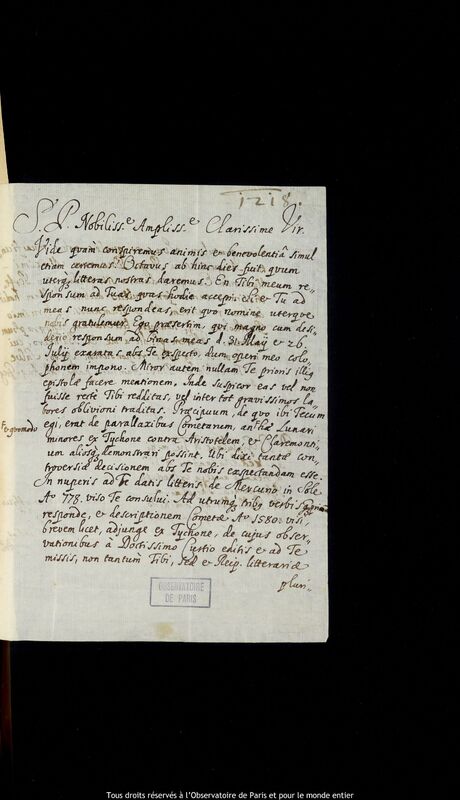 1218.
S. P. Nobiliss.e Ampliss.e Clarissime Vir.
Vide quam conspiremus animis et benevolentiâ simul
etiam certemus. Octavus ab hinc dies fuit quum
uterq; litteras nostras daremus. En Tibi meum re-
sponsum ad Tuas, quas hodie accepi. Si et Tu ad
meas nunc respondeas, erit quo nomine uterque
nobis gratulemur. Ego praesertim, qui magno cum desi-
derio responsum ad binas meas d. 31 Maij et 26.
Julij exaratas abs Te exspecto, dum operi meo colo-
phonem impono. Miror autem nullam Te prioris illiq
epistolae facere mentionem. Inde suspicor eas vel non
fuisse recte Tibi redditas, vel inter tot gravissimos la-
bores oblivioni traditas. Praecipuum, de quo ibi Tecum
egi, erat de parallaxibus Cometarum, an hae Lunari
Et quomodo
minores ex Tychone contra Aristotelem, et Claremonti-
um aliosq; demonstrari possint. Ubi dixi tantae con-
troversiae decisionem abs Te nobis exspectandam esse.
In nuperis ad Te datis litteris de Mercurio in Sole
Ao 778. viso Te consului. Ad utrumq; tribq verbis
responde, et descriptionem Cometae Ao 1580. visi,
brevem licet, adjunge ex Tychone, de cujus obser-
vationibus à Doctissimo Curtio editis et ad Te
missis, non tantum Tibi, sed et Reip. litterariae
pluri-
OBSERVATOIRE
DE PARIS
Tous droits réservés à l'Observatoire de Paris et pour le monde entier